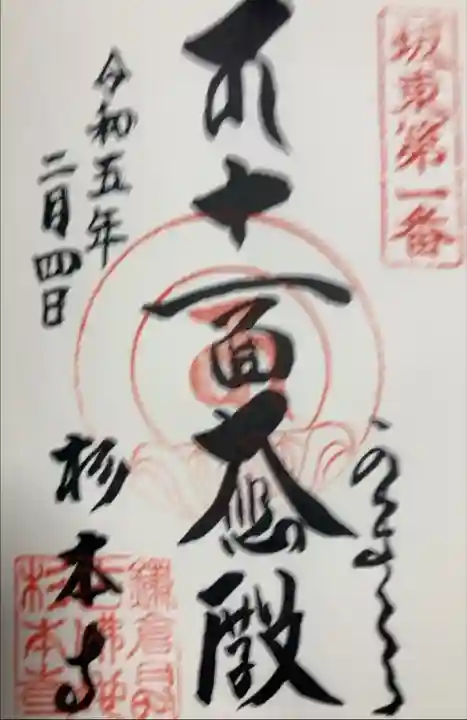 坂東第一番
十一面大悲殿
令和五年
二月四日
杉本寺
鎌倉
杉本寺